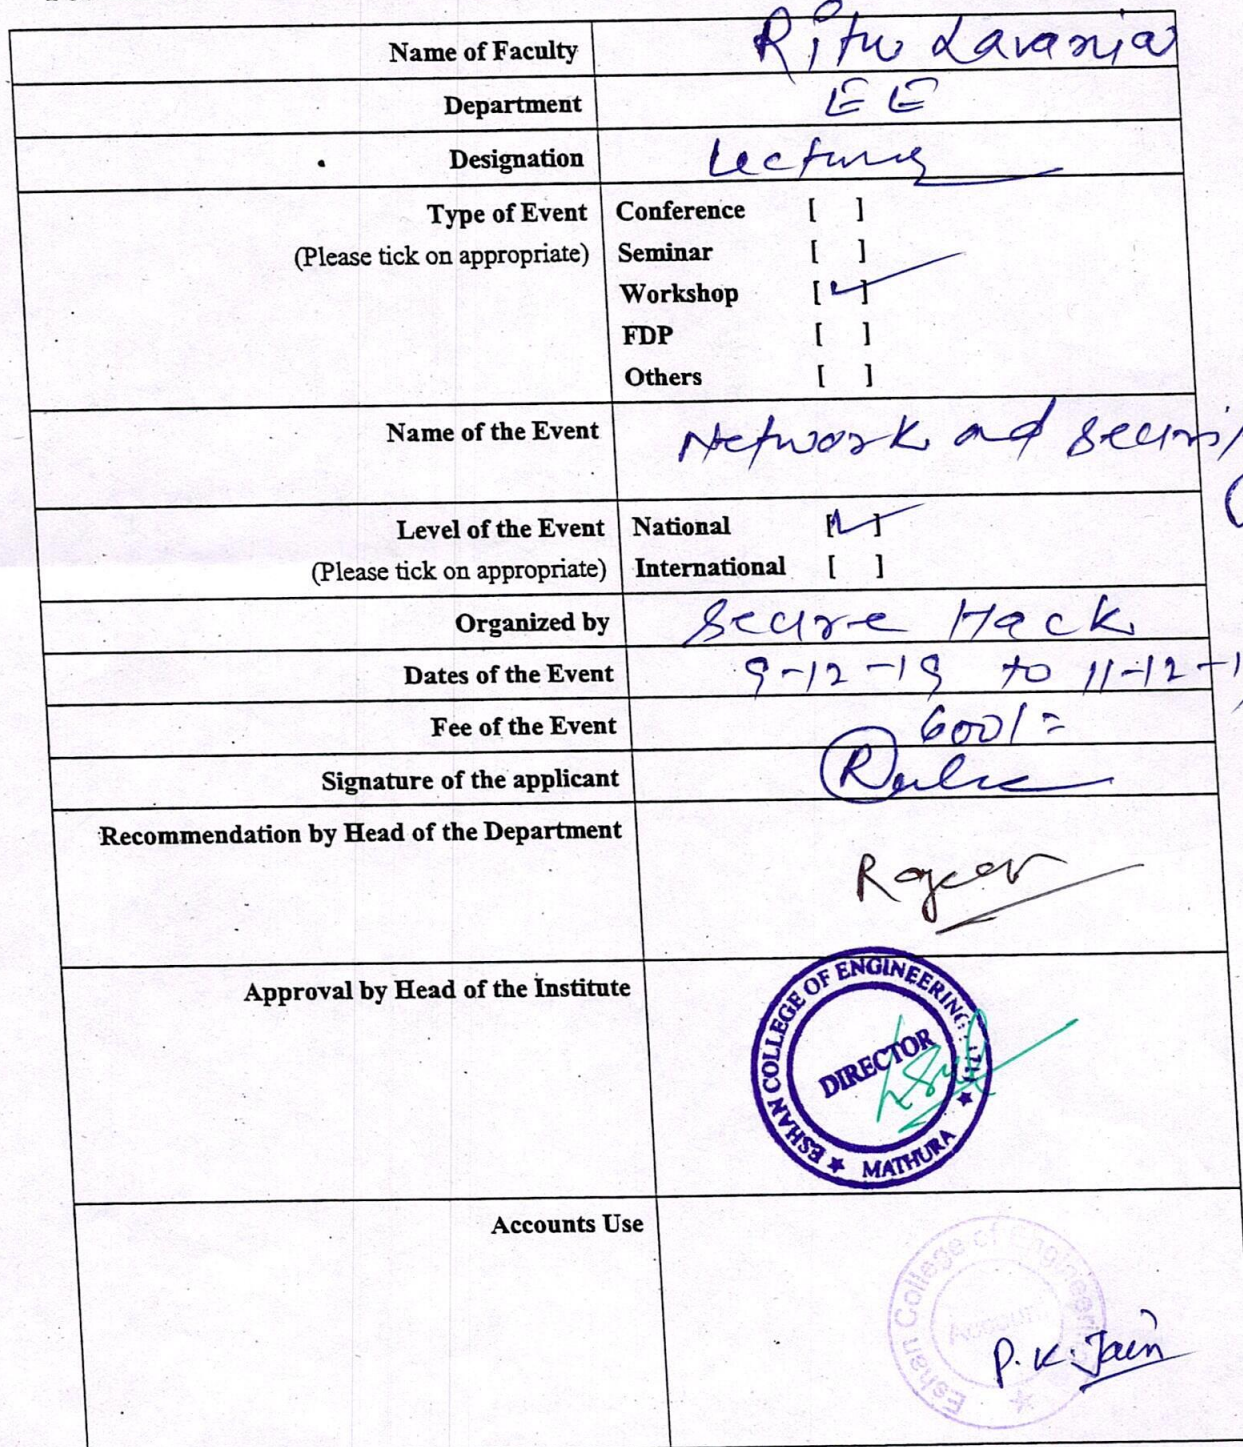 Name of Faculty Ritu Lavania
Department EE
Designation Lecturer
Type of Event Conference [ ]
(Please tick on appropriate) Seminar [ ]
Workshop [✓]
FDP [ ]
Others [ ]
Name of the Event Network and Securi
Level of the Event National [✓]
(Please tick on appropriate) International [ ]
Organized by Secure Hack
Dates of the Event 9-12-19 to 11-12-1
Fee of the Event 600/=
Signature of the applicant
Recommendation by Head of the Department
Rajeev
Approval by Head of the Institute
ESHAN COLLEGE OF ENGINEERING
DIRECTOR
MATHURA
Accounts Use
Eshan College of Engineering
Account
P.K. Jain